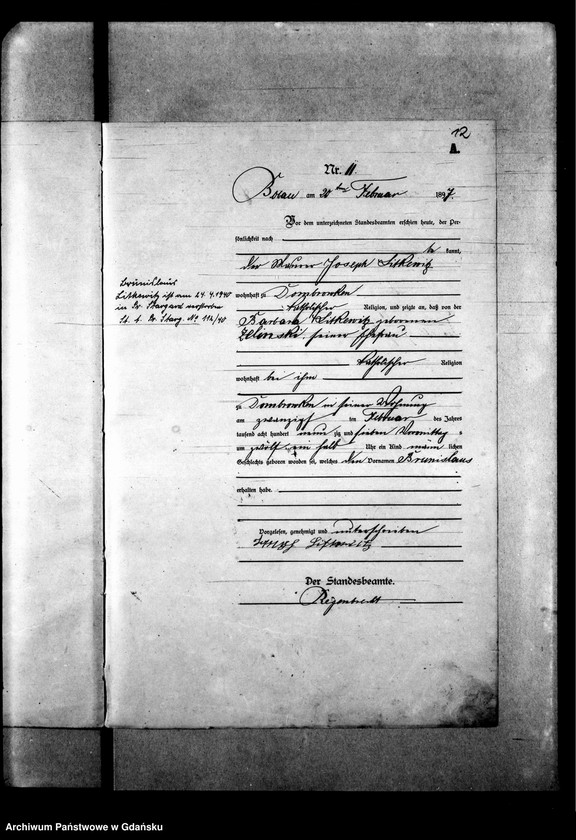 12
A.
Nr. 11.
Borau am 20ten Februar 1897.
Vor dem unterzeichneten Standesbeamten erschien heute, der Per-
sönlichkeit nach
be kannt,
der Maurer Joseph Litkewitz
wohnhaft zu Dombrowken
katholischer Religion, und zeigte an, daß von der
Barbara Litkewitz geborenen
Zelinski, seiner Ehefrau
katholischer Religion
wohnhaft bei ihm
zu Dombrowken in seiner Wohnung
am zwanzigsten Februar des Jahres
tausend acht hundert neun zig und sieben Vormittags
um zwölf ein halb Uhr ein Kind männ lichen
Geschlechts geboren worden sei, welches den Vornamen Brunislaus
erhalten habe.
Vorgelesen, genehmigt und unterschrieben
Joseph Litkewitz
Der Standesbeamte.
Brunislaus
Litkewitz ist am 24.4.1940
in Pr. Stargard verstorben
St. A. Pr. Starg. No 112/40
Archiwum Państwowe w Gdańsku